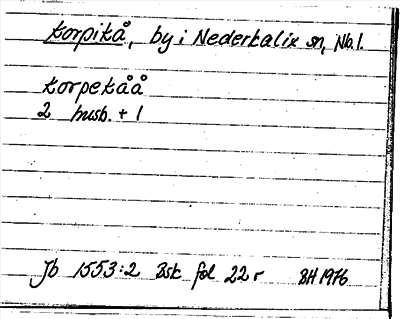 Korpikå, by i Nederkalix sn, Nb.l.
Korpekåå
2 husb. + 1
Jb 1553:2 Bsk fol 22 r BH 1976